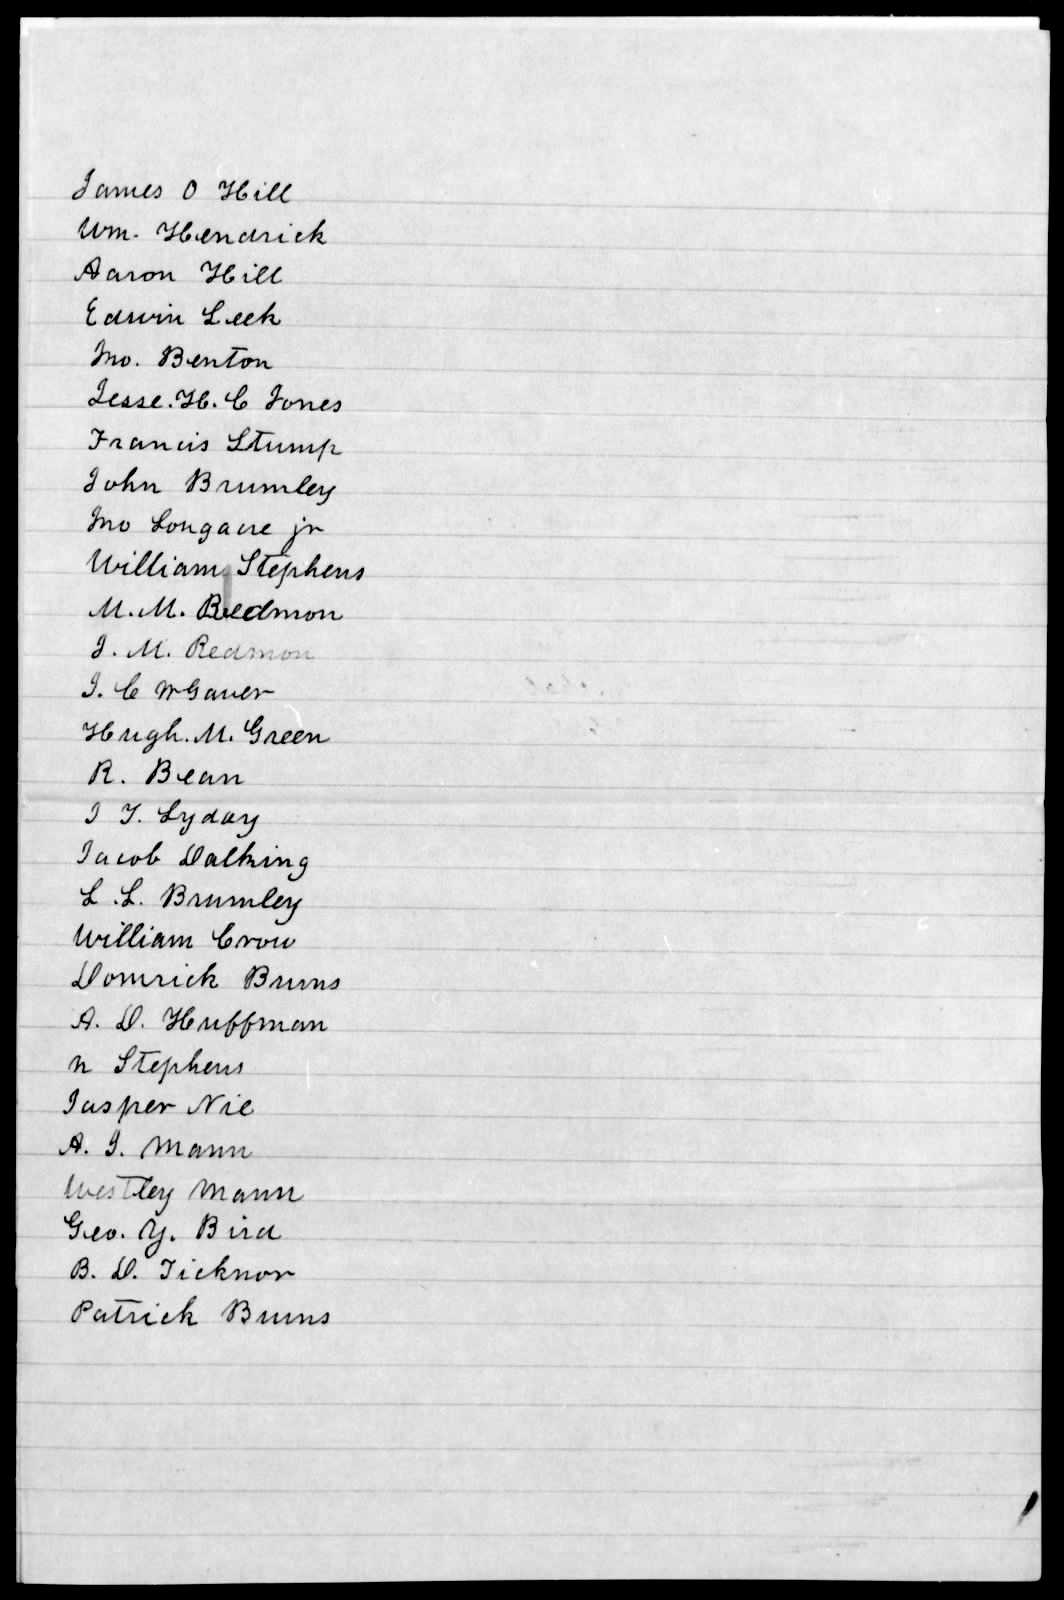 James O Hill
Wm. Hendrick
Aaron Hill
Edwin Leek
Jno. Benton
Jesse. H. C Jones
Francis Stump
John Brumley
Jno Longacre jr
William Stephens
M. M. Redmon
J. M. Redmon
J. C McGaver
Hugh. M. Green
R. Bean
J Y. Lyday
Jacob Dalking
L. L. Brumley
William Crow
Domrick Bruns
A. D. Huffman
n Stephens
Jasper Nie
A. J. Mann
Westley Mann
Geo. Y. Bird
B. D. Ticknor
Patrick Bruns